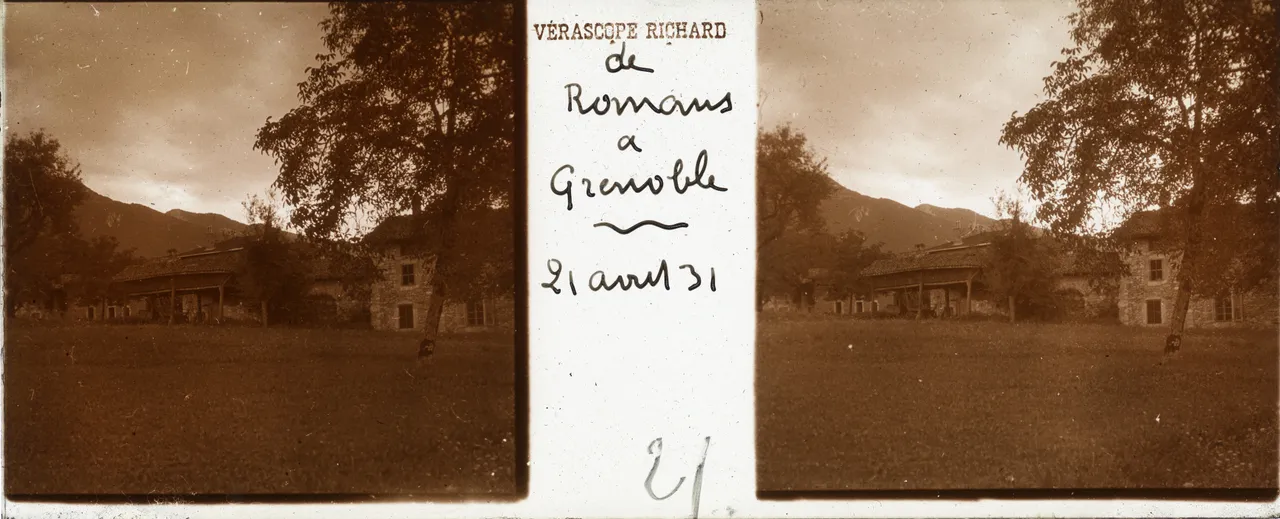 VÉRASCOPE RICHARD
de
Romans
a
Grenoble
21 avril 31
21